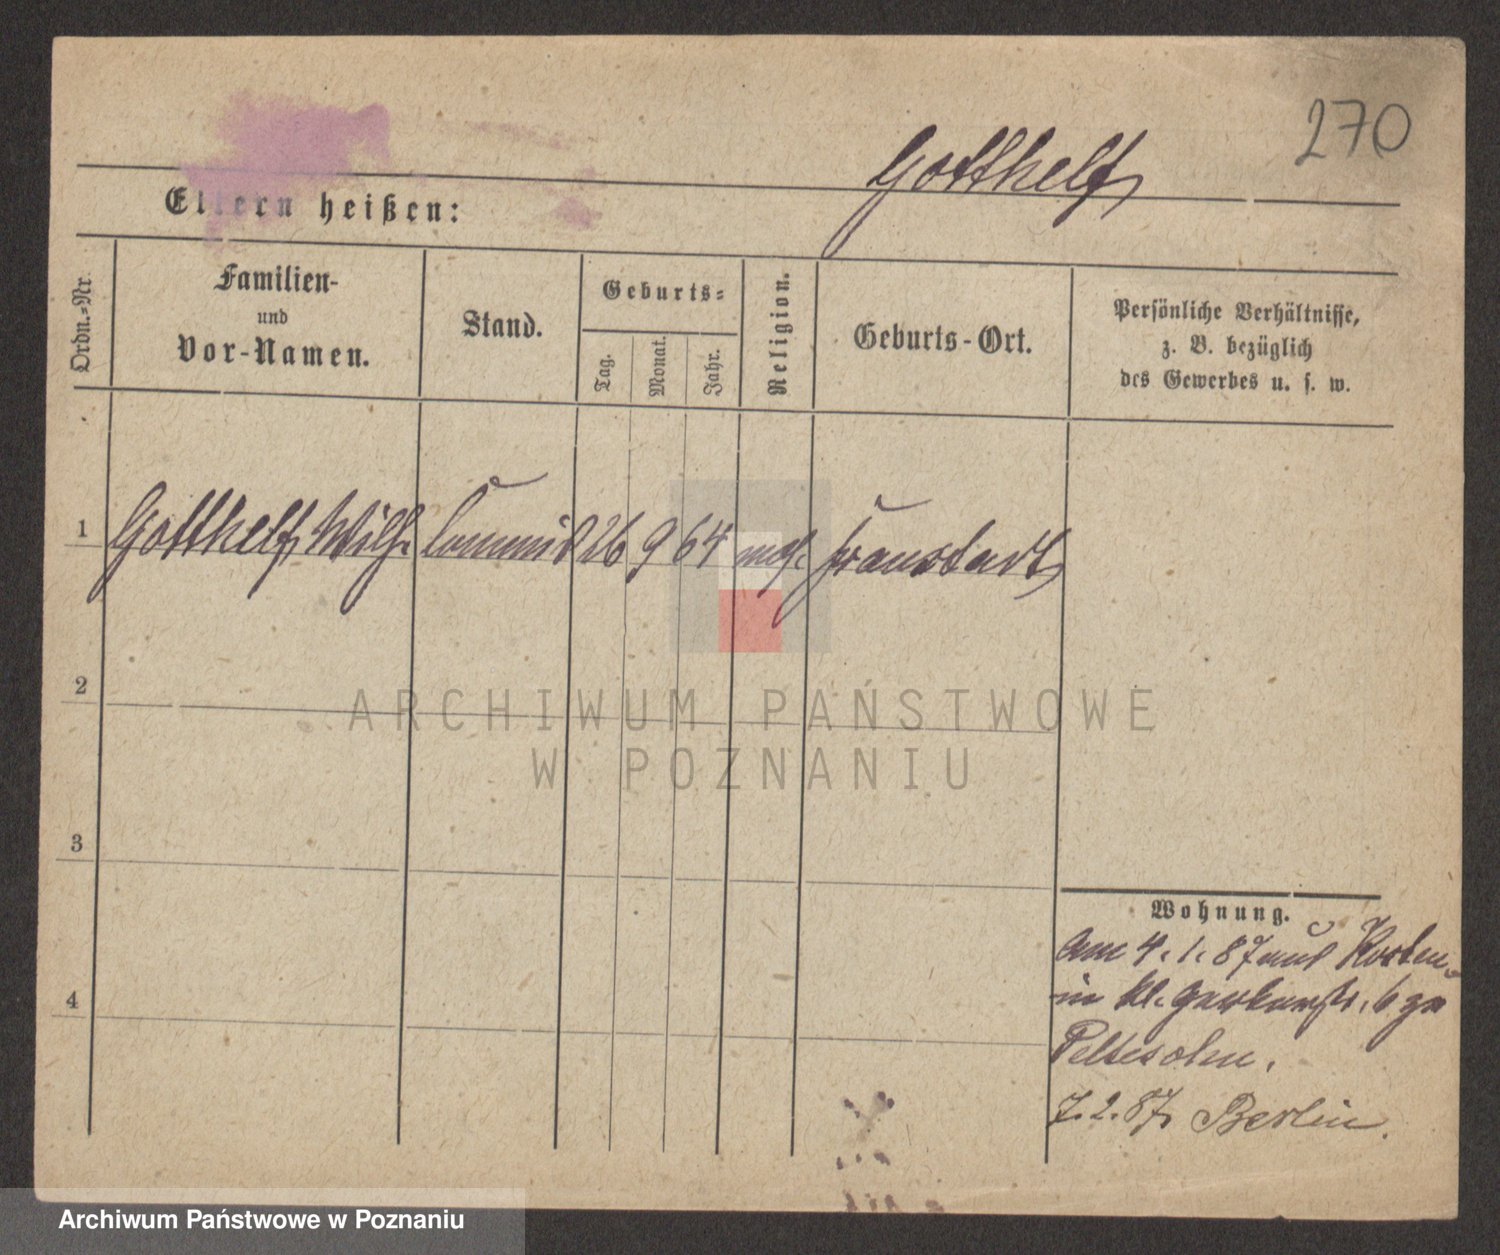 270
Gotthelf
Eltern heißen:
Ordn.-Nr.
Familien-
und
Vor-Namen.
Stand.
Geburts-
Tag.
Monat.
Jahr.
Religion.
Geburts-Ort.
Persönliche Verhältnisse,
z. B. bezüglich
des Gewerbes u. s. w.
1 Gotthelf, Wilh. Commis 26 9 64 mos. Fraustadt
2
3
4
ARCHIWUM PAŃSTWOWE
W POZNANIU
Wohnung.
Am 4. 1. 87 aus Kosten
in kl. Gerberstr. 6 zu
Peltesohn.
7. 2. 87, Berlin.
Archiwum Państwowe w Poznaniu